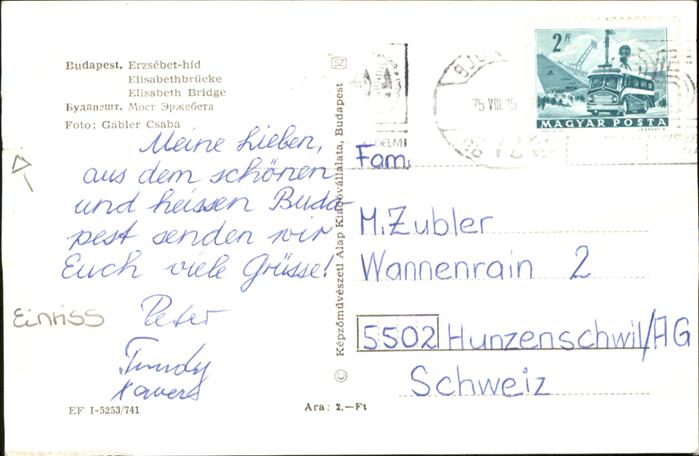 Budapest. Erzsébet-híd
Elisabethbrücke
Elisabeth Bridge
Будапешт. Мост Эржебета
Foto: Gábler Csaba
Meine Lieben,
aus dem schönen
und heissen Buda-
pest senden wir
Euch viele Grüsse!
Einriss
Peter
Trudy
EF I-5253/741
Ara: 2.—Ft
© Képzőművészeti Alap Kiadóvállalata, Budapest
75 VIII
2 Ft
MAGYAR POSTA
Fam.
M. Zubler
Wannenrain 2
5502 Hunzenschwil/AG
Schweiz